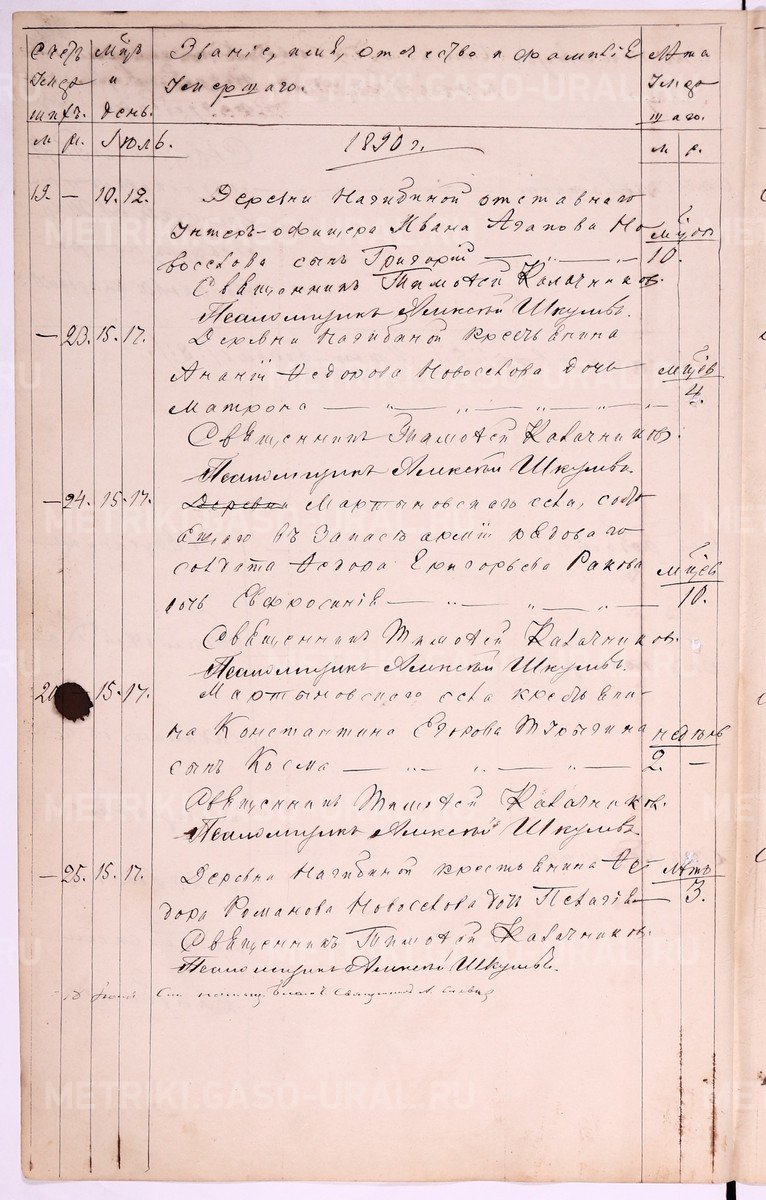 Счетъ Мѣц. Званіе, имя, отчество и фамилія Лѣта
умер и умершаго. умер
шихъ. день. шаго.
м. ж. Іюль. 1890 г. м. ж.
19. — 10. 12. Деревни Нагибиной отставнаго
Унтеръ-офицера Ивана Агапова Но мѣцов
воселова сынъ Григорій — „ — „ — 10.
Священникъ Тимофей Калачников.
Псаломщикъ Алексѣй Шкулевъ.
— 23. 15. 17. Деревни Нагибиной крестьянина
Ананіи Федорова Новоселова дочь мѣцев
Матрона — „ — „ — „ — „ — 4.
Священникъ Тимофей Калачников.
Псаломщикъ Алексѣй Шкулевъ.
— 24. 15. 17. Деревни Мартыновскаго села, состо
ящаго въ запасѣ арміи рядоваго
солдата Федора Григорьева Ракова мѣцев
дочь Евфросинія — „ — „ — „ — 10.
Священникъ Тимофей Калачников.
Псаломщикъ Алексѣй Шкулевъ.
20 — 15. 17. Мартыновскаго села крестьяни-
на Константина Егорова недѣль
сынъ Косма — „ — „ — „ — 2. —
Священникъ Тимофей Калачников.
Псаломщикъ Алексѣй Шкулевъ.
— 25. 15. 17. Деревни Нагибиной крестьянина Фе- Лѣтъ
дора Романова Новоселова дочь Пелагія — 3.
Священникъ Тимофей Калачников.
Псаломщикъ Алексѣй Шкулевъ.
Священникъ
METRIKI.GASO-URAL.RU